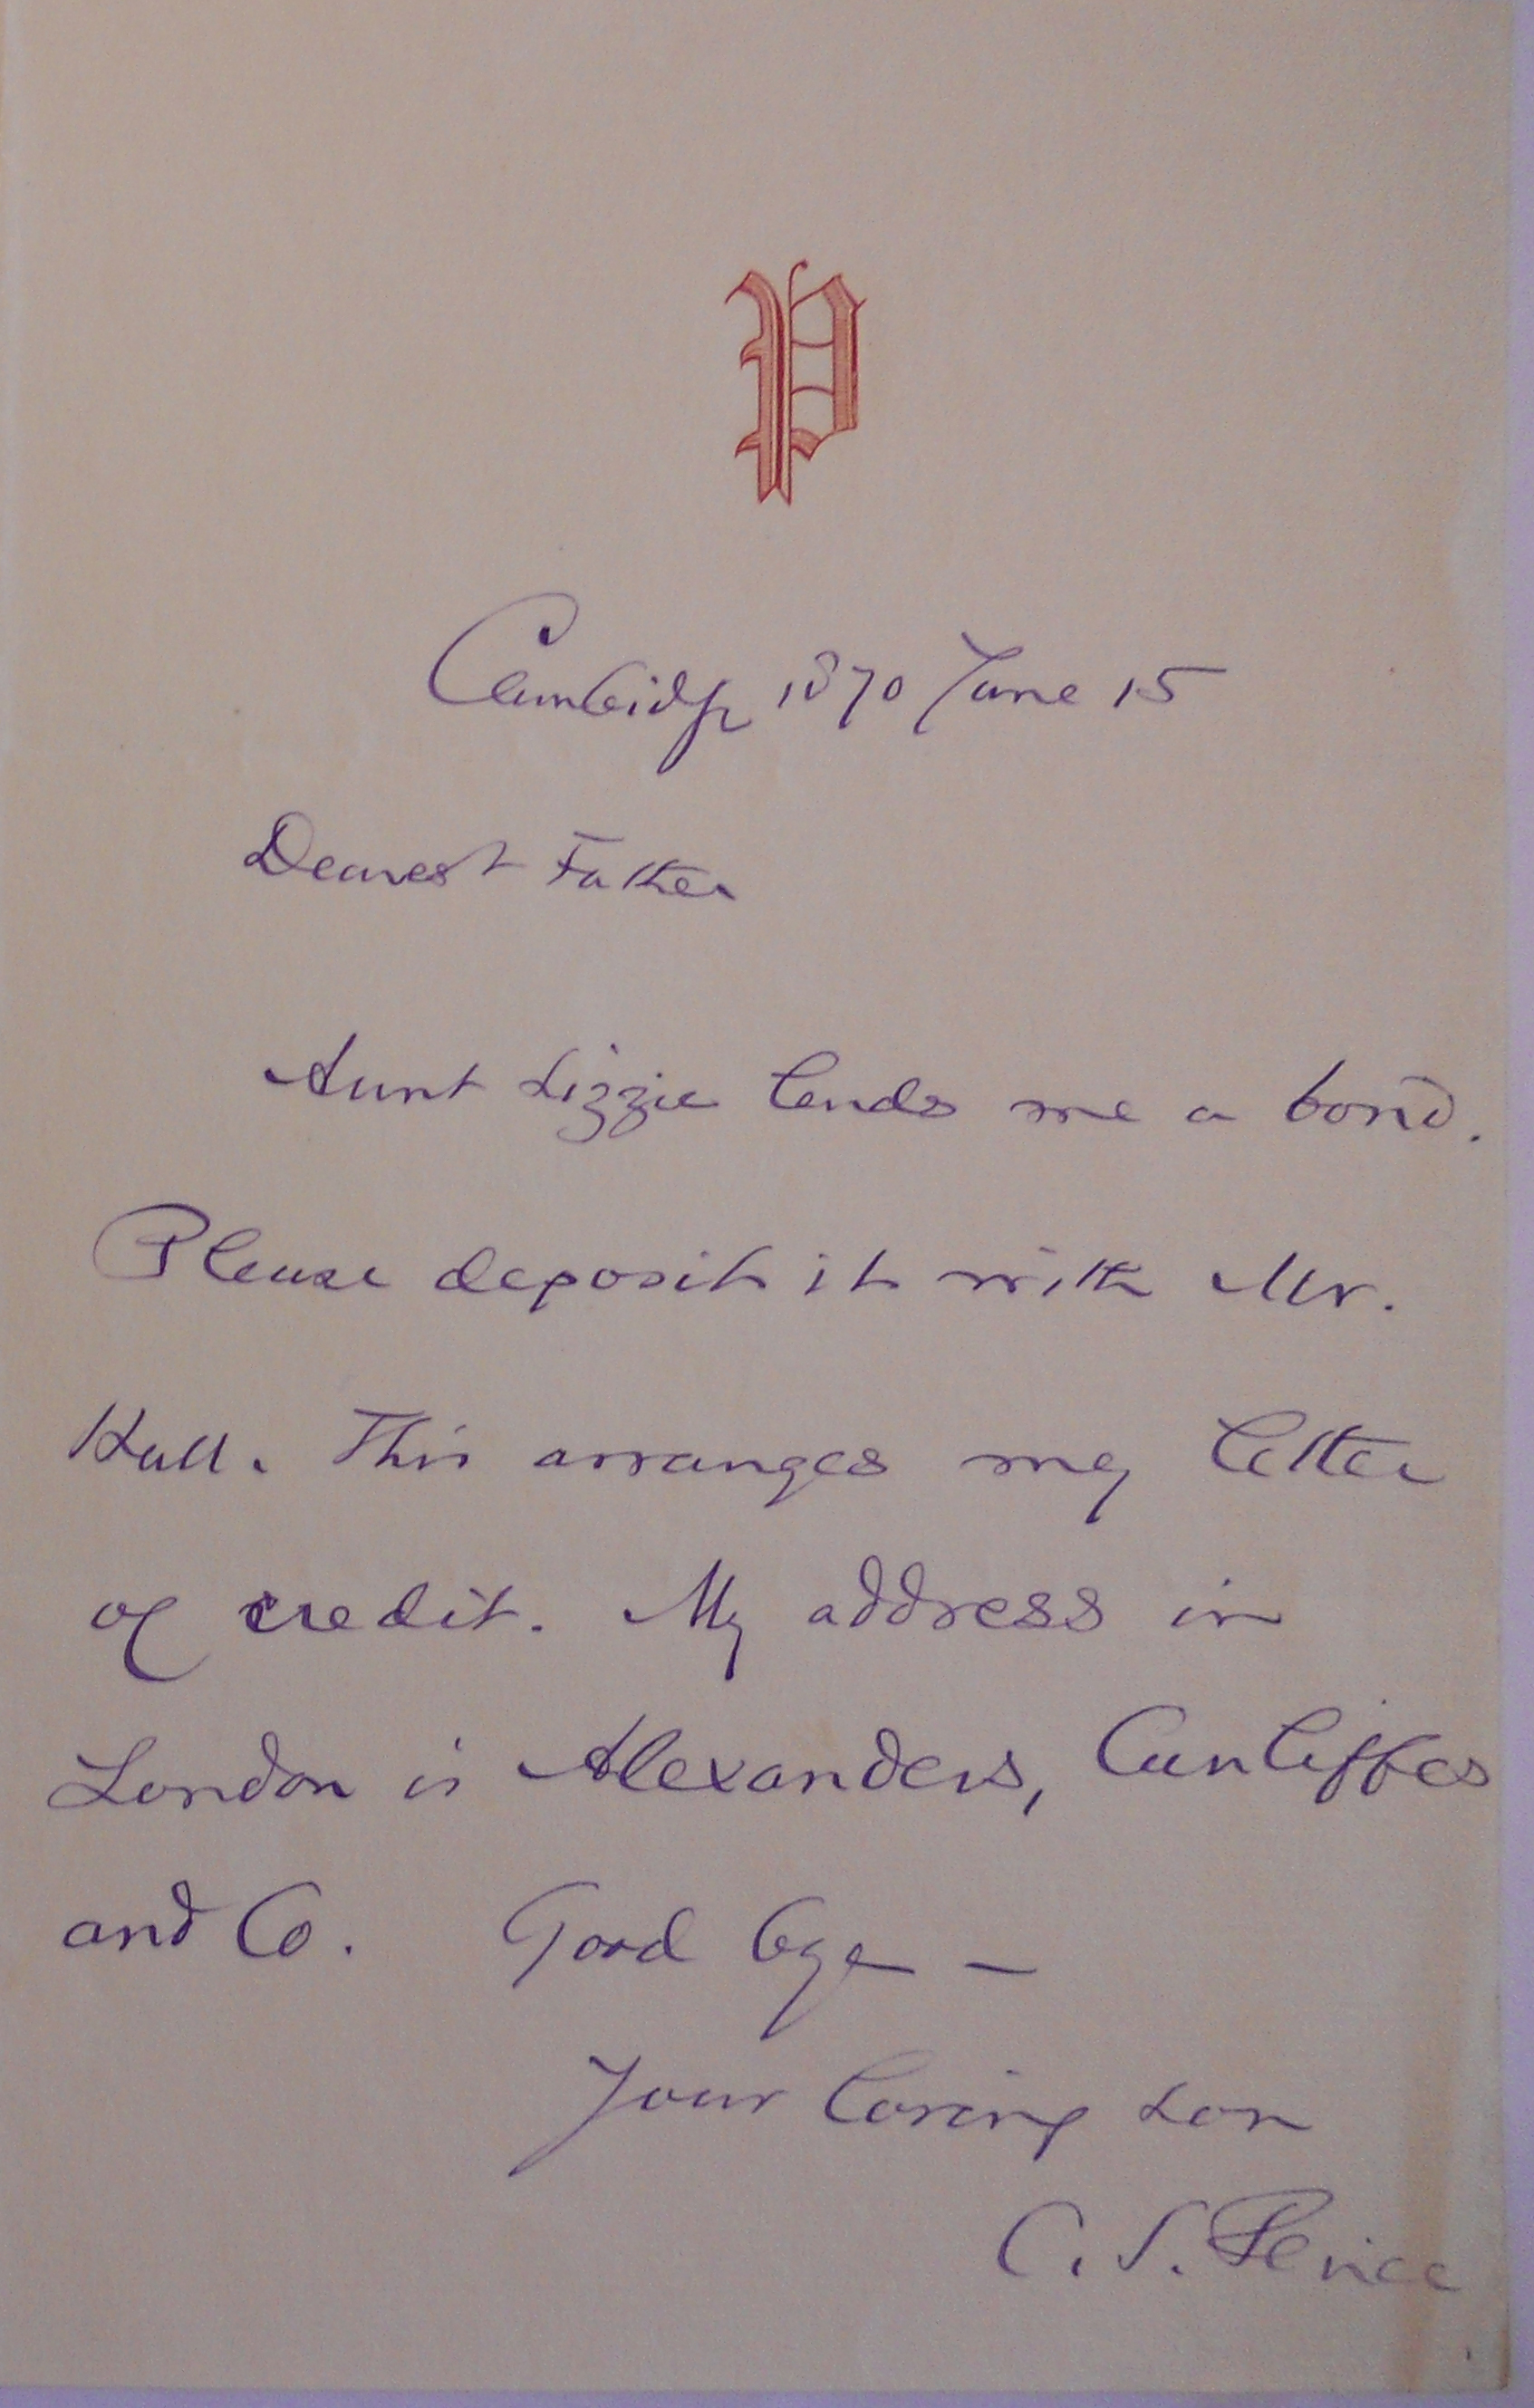 P
Cambridge 1870 June 15
Dearest Father
Aunt Lizzie lends me a bond.
Please deposit it with Mr.
Hall. This arranges my letter
of credit. My address in
London is Alexanders, Cunliffes
and Co. Good bye —
Your loving son
C. S. Peirce